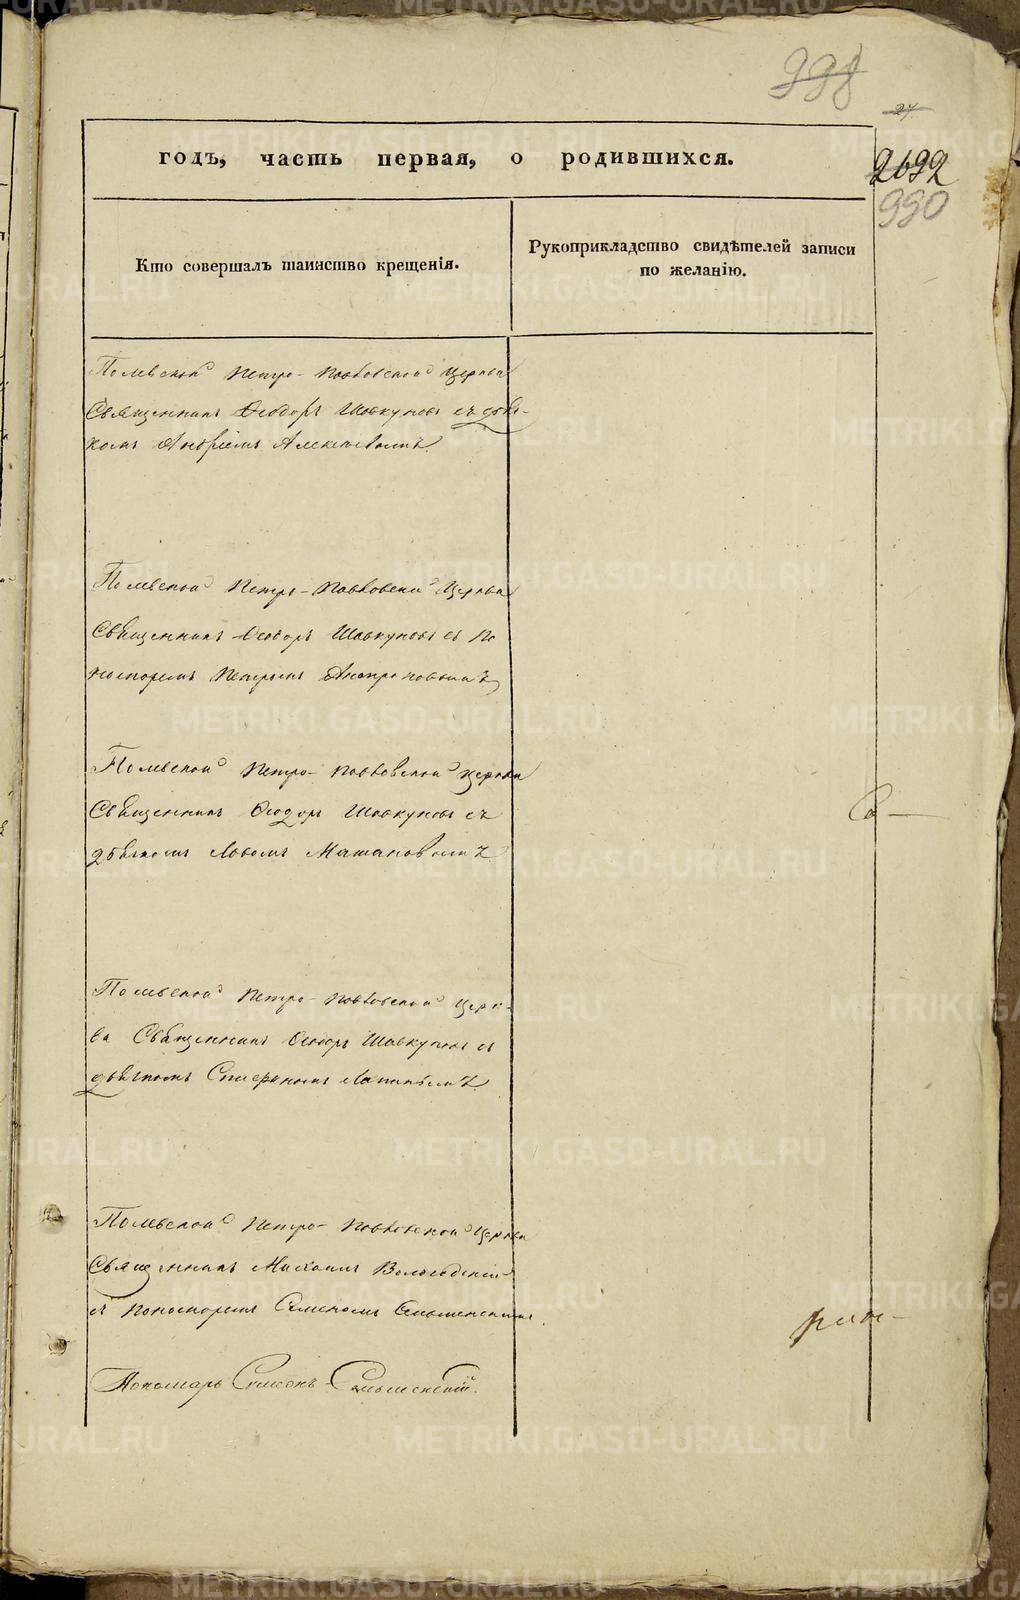 998
27
годъ, часть первая, о родившихся.
2692
990
Кто совершалъ таинство крещенія.
Рукоприкладство свидѣтелей записи
по желанію.
Полевской Петро-Павловской Церкви
Священникъ Ѳеодоръ Шавкуновъ съ дьяч-
комъ Андреемъ
Полевской Петро-Павловской Церкви
Священникъ Ѳеодоръ Шавкуновъ съ По
номоремъ Петромъ
Полевской Петро-Павловской Церкви
Священникъ Ѳеодоръ Шавкуновъ съ
дьячкомъ Львомъ
Со
Полевской Петро-Павловской Церк-
ви Священникъ Ѳеодоръ Шавкуновъ съ
дьячкомъ Стефаномъ
Полевской Петро-Павловской Церкви
Священникъ Михаилъ Вологодский
съ Пономоремъ Симеономъ Смышенскимъ
Пономарь Симеонъ
METRIKI.GASO-URAL.RU